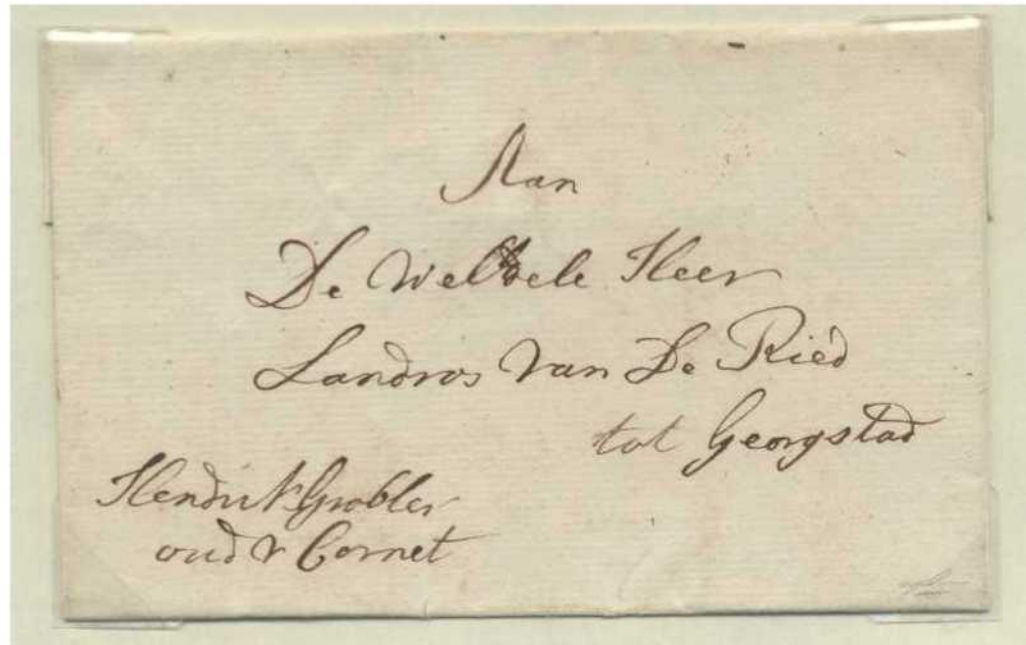 Aan
De WelEdele Heer
Landros van De Riëd
tot Georgstad
Hendrik Grobler
oud v Cornet